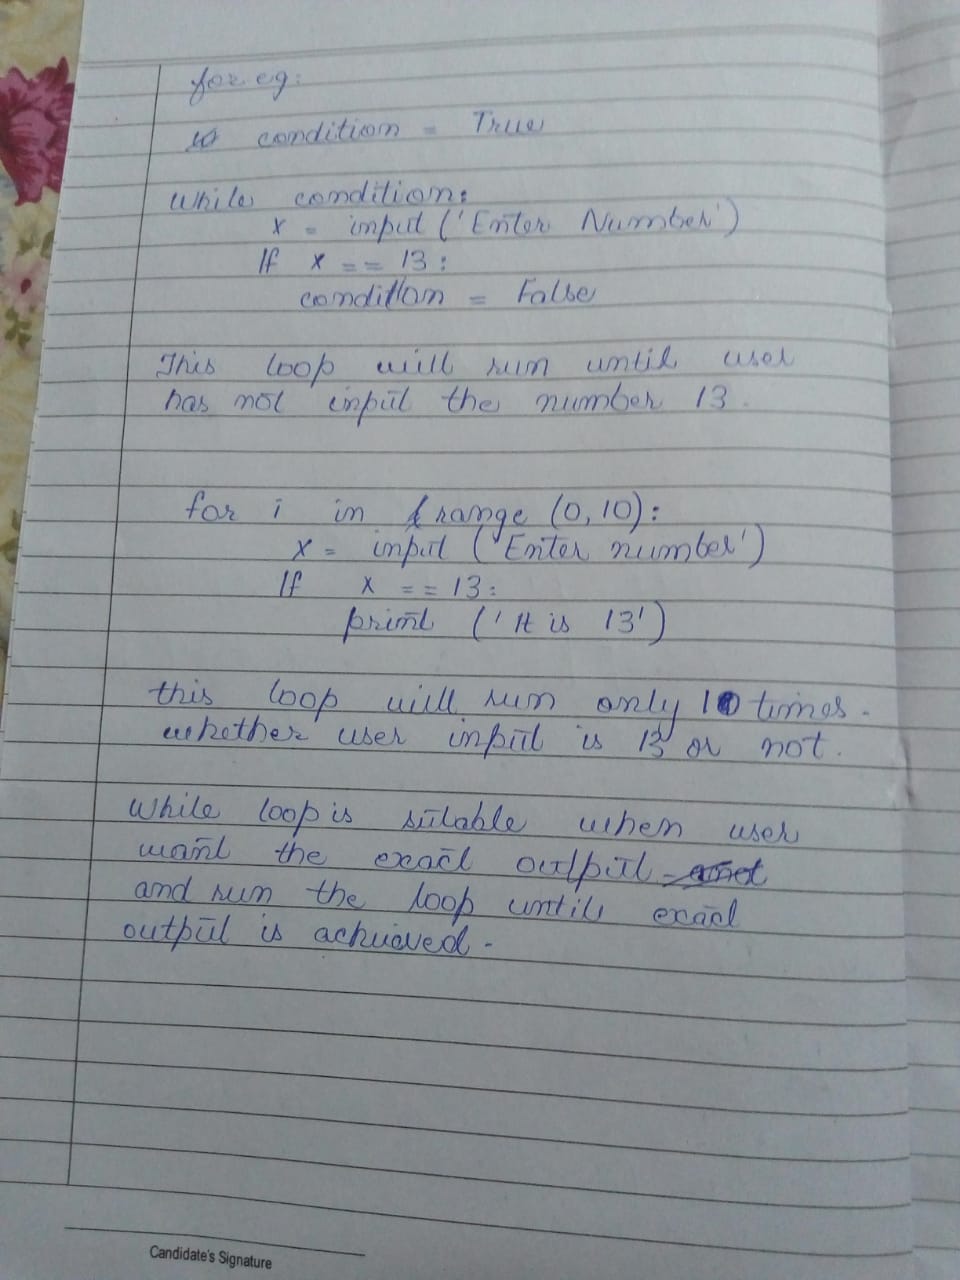 for eg:
condition = True
While condition:
x = input ('Enter Number')
If x == 13:
condition = False
This loop will run until user
has not input the number 13.
for i in range (0, 10):
x = input ('Enter number')
If x == 13:
print ('It is 13')
this loop will run only 10 times.
whether user input is 13 or not.
While loop is sutable when user
want the exact output
and run the loop until exact
output is achieved.
Candidate's Signature